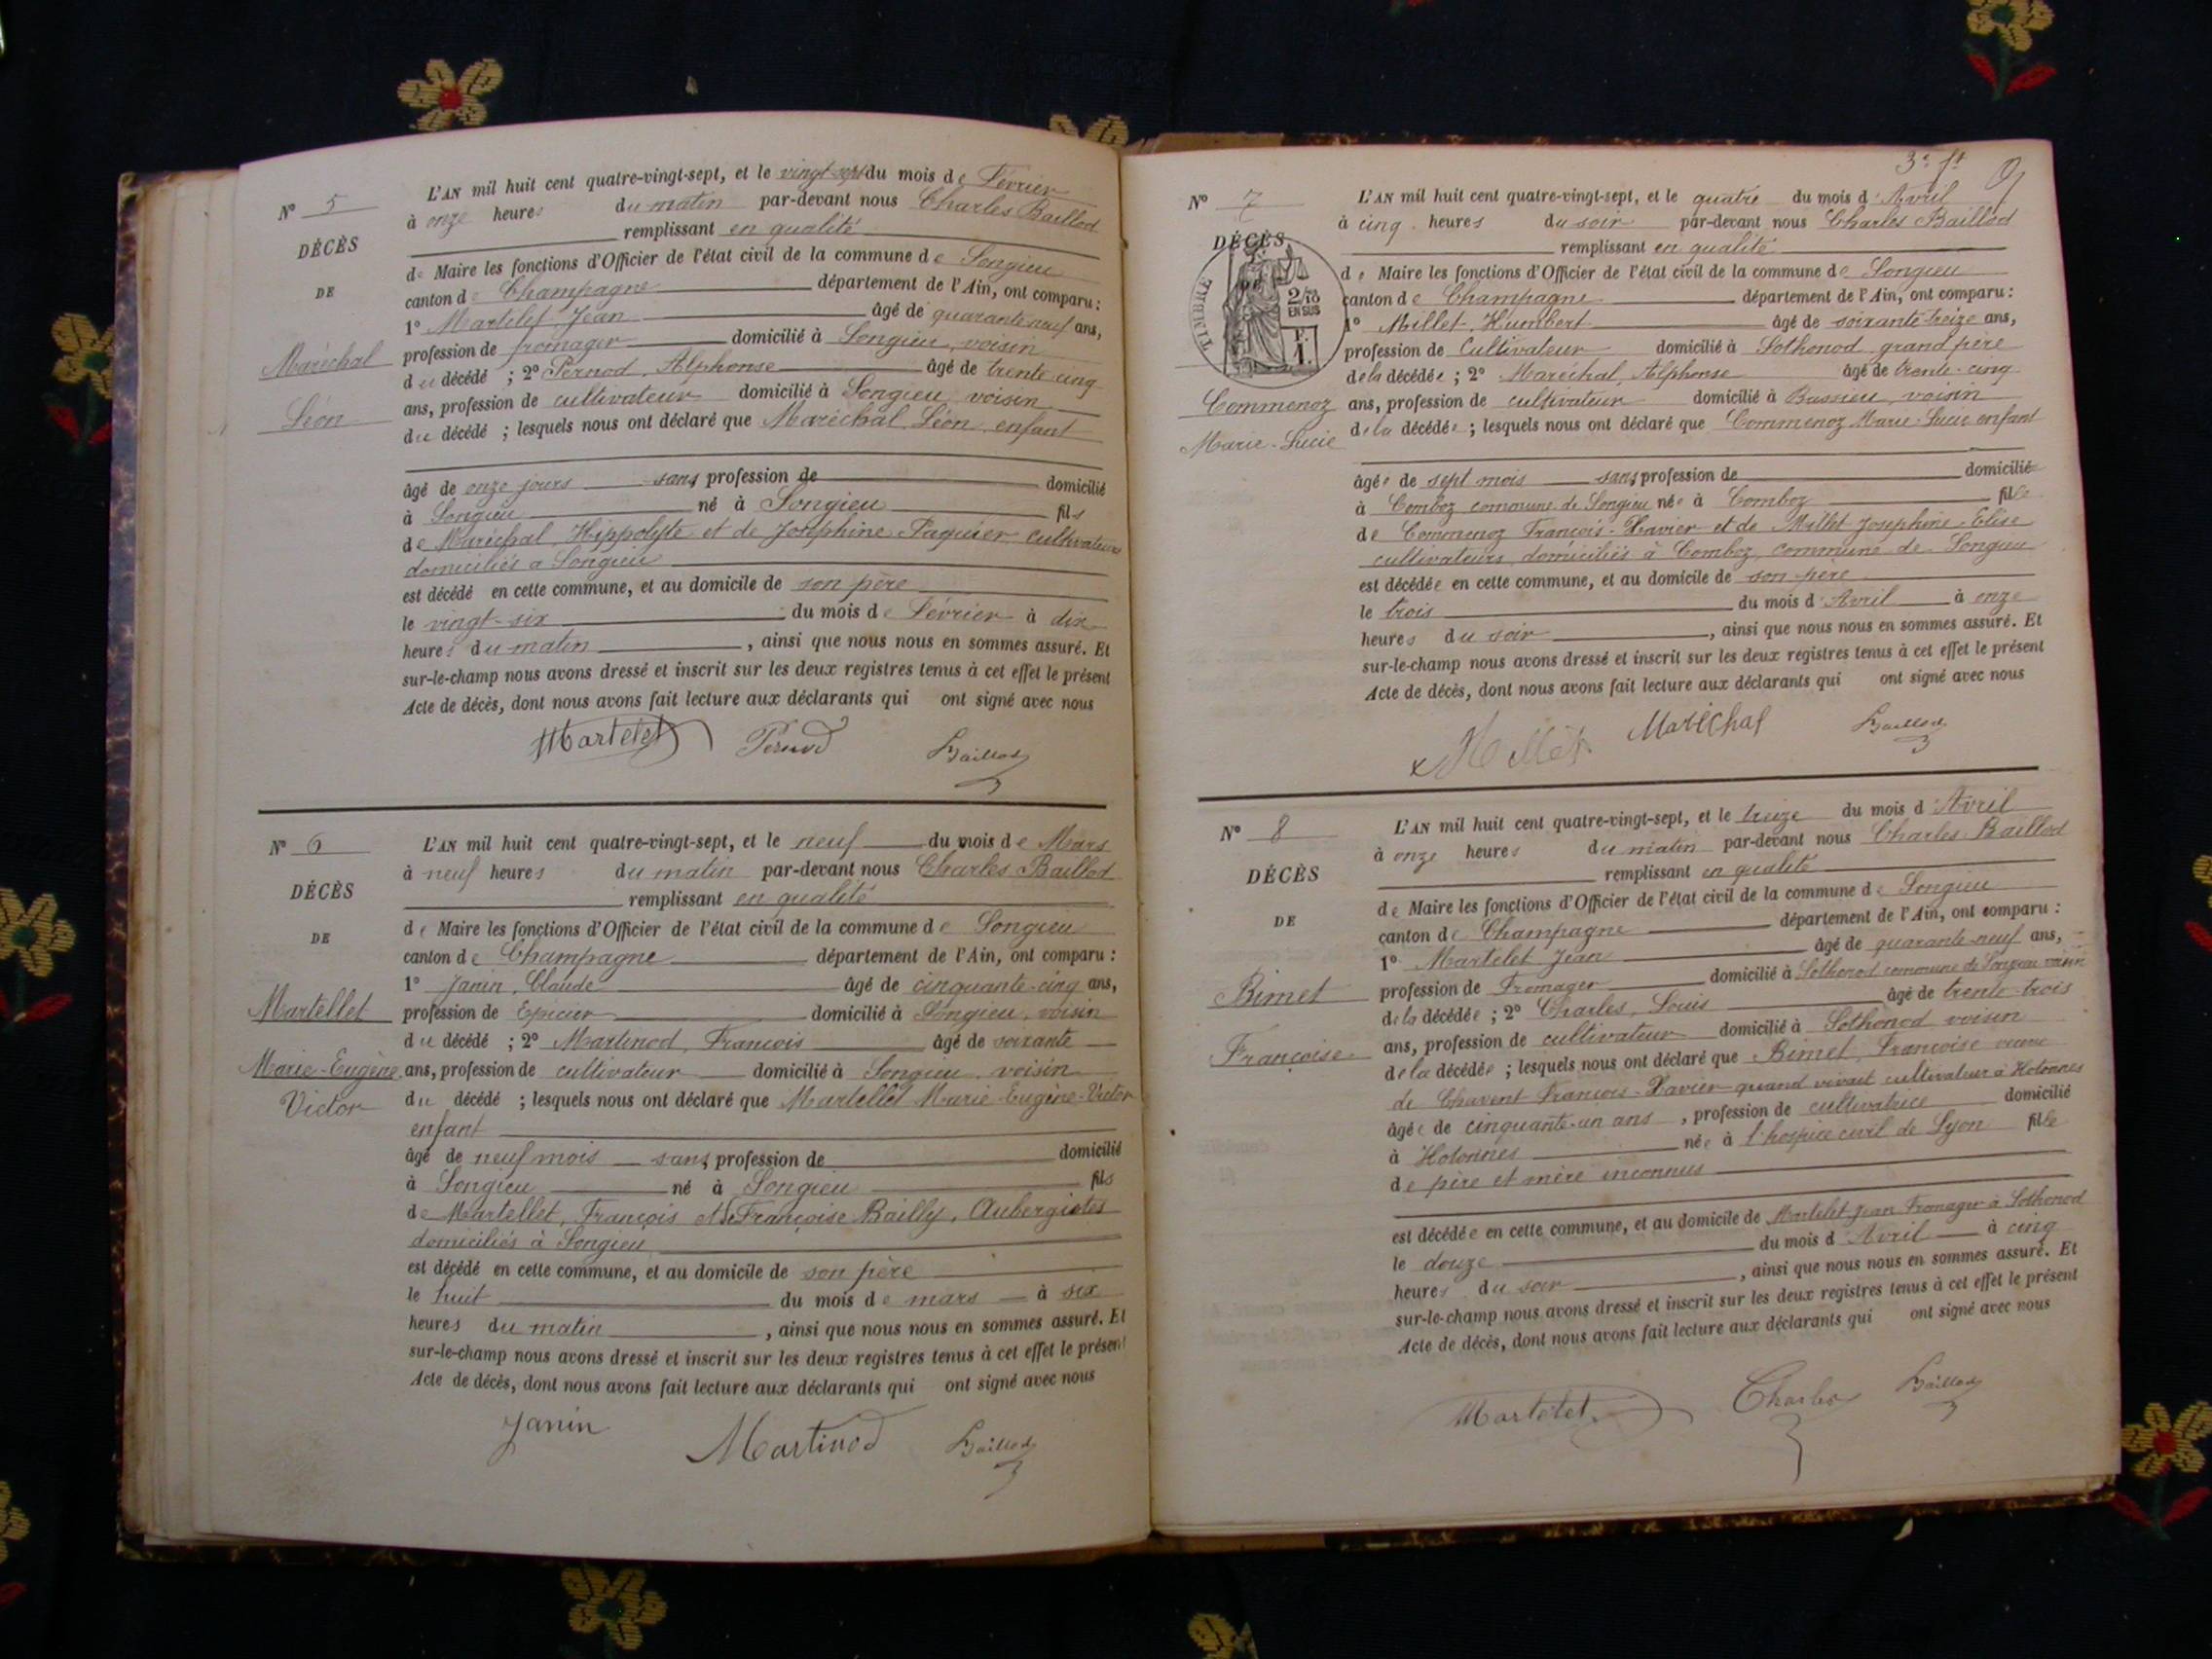 N° 5
DÉCÈS
DE
Maréchal
Léon
L'AN mil huit cent quatre-vingt-sept, et le vingt-sept du mois de Février
à onze heures du matin par-devant nous Charles Baillod
remplissant en qualité
de Maire les fonctions d'Officier de l'état civil de la commune de Songieu
canton de Champagne département de l'Ain, ont comparu :
1° Martelet Jean âgé de quarante neuf ans,
profession de fromager domicilié à Songieu, voisin
du décédé ; 2° Pernod, Alphonse âgé de trente cinq
ans, profession de cultivateur domicilié à Songieu voisin
du décédé ; lesquels nous ont déclaré que Maréchal, Léon, enfant
âgé de onze jours sans profession de domicilié
à Songieu né à Songieu fils
de Maréchal, Hippolyte et de Joséphine Paquier cultivateurs
domiciliés à Songieu
est décédé en cette commune, et au domicile de son père
le vingt-six du mois de Février à dix
heures du matin , ainsi que nous nous en sommes assuré. Et
sur-le-champ nous avons dressé et inscrit sur les deux registres tenus à cet effet le présent
Acte de décès, dont nous avons fait lecture aux déclarants qui ont signé avec nous
Martelet Pernod Baillod
N° 6
DÉCÈS
DE
Martellet
Marie-Eugène
Victor
L'AN mil huit cent quatre-vingt-sept, et le neuf du mois de Mars
à neuf heures du matin par-devant nous Charles Baillod
remplissant en qualité
de Maire les fonctions d'Officier de l'état civil de la commune de Songieu
canton de Champagne département de l'Ain, ont comparu :
1° Janin, Claude âgé de cinquante-cinq ans,
profession de Epicier domicilié à Songieu, voisin
du décédé ; 2° Martinod, François âgé de soixante
ans, profession de cultivateur domicilié à Songieu, voisin
du décédé ; lesquels nous ont déclaré que Martellet Marie-Eugène-Victor
enfant
âgé de neuf mois sans profession de domicilié
à Songieu né à Songieu fils
de Martellet, François et de Françoise Bailly, Aubergistes
domiciliés à Songieu
est décédé en cette commune, et au domicile de son père
le huit du mois de mars à six
heures du matin , ainsi que nous nous en sommes assuré. Et
sur-le-champ nous avons dressé et inscrit sur les deux registres tenus à cet effet le présent
Acte de décès, dont nous avons fait lecture aux déclarants qui ont signé avec nous
Janin Martinod Baillod
3e ft 9
N° 7
DÉCÈS
DE
TIMBRE
2/10
EN SUS
F.
1.
Commenoz
Marie-Lucie
L'AN mil huit cent quatre-vingt-sept, et le quatre du mois d'Avril
à cinq heures du soir par-devant nous Charles Baillod
remplissant en qualité
de Maire les fonctions d'Officier de l'état civil de la commune de Songieu
canton de Champagne département de l'Ain, ont comparu :
1° Millet, Humbert âgé de soixante-treize ans,
profession de Cultivateur domicilié à Sothonod grand père
de la décédée ; 2° Maréchal, Alphonse âgé de trente-cinq
ans, profession de cultivateur domicilié à Bassieu, voisin
de la décédée ; lesquels nous ont déclaré que Commenoz Marie-Lucie enfant
âgée de sept mois sans profession de domiciliée
à Comboz commune de Songieu née à Comboz fille
de Commenoz François-Xavier et de Millet Joséphine-Elise
cultivateurs, domiciliés à Comboz, commune de Songieu
est décédée en cette commune, et au domicile de son père
le trois du mois d'Avril à onze
heures du soir , ainsi que nous nous en sommes assuré. Et
sur-le-champ nous avons dressé et inscrit sur les deux registres tenus à cet effet le présent
Acte de décès, dont nous avons fait lecture aux déclarants qui ont signé avec nous
Millet Maréchal Baillod
N° 8
DÉCÈS
DE
Bimet
Françoise
L'AN mil huit cent quatre-vingt-sept, et le treize du mois d'Avril
à onze heures du matin par-devant nous Charles Baillod
remplissant en qualité
de Maire les fonctions d'Officier de l'état civil de la commune de Songieu
canton de Champagne département de l'Ain, ont comparu :
1° Martelet Jean âgé de quarante-neuf ans,
profession de Fromager domicilié à Sothonod commune de Songieu voisin
de la décédée ; 2° Charles, Louis âgé de trente-trois
ans, profession de cultivateur domicilié à Sothonod voisin
de la décédée ; lesquels nous ont déclaré que Bimet, Françoise veuve
de Chavent François-Xavier quand vivait cultivateur à Hotonnes
âgée de cinquante-un ans , profession de cultivatrice domicilié
à Hotonnes née à l'hospice civil de Lyon fille
de père et mère inconnus
est décédée en cette commune, et au domicile de Martelet Jean Fromager à Sothonod
le douze du mois d'Avril à cinq
heures du soir , ainsi que nous nous en sommes assuré. Et
sur-le-champ nous avons dressé et inscrit sur les deux registres tenus à cet effet le présent
Acte de décès, dont nous avons fait lecture aux déclarants qui ont signé avec nous
Martelet Charles Baillod